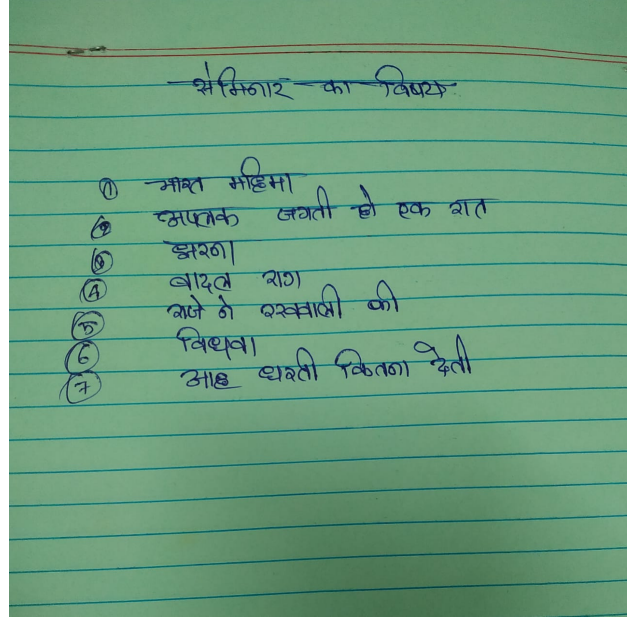 सेमिनार का विषय
① भारत महिमा
② अपलक जगती हो एक रात
③ झरना
④ बादल राग
⑤ राजे ने रखवाली की
⑥ विधवा
⑦ आह धरती कितना देती